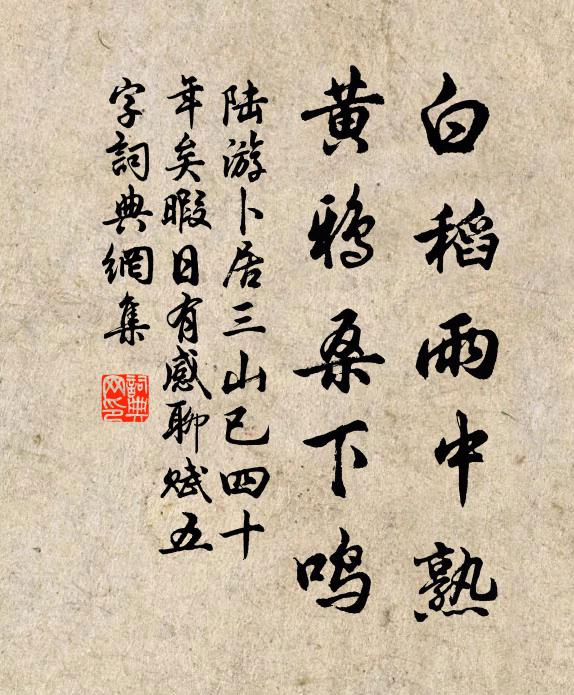 白稻雨中熟
黄鸦桑下鸣
陆游卜居三山已四十
年矣暇日有感聊赋五
字詞典網集
詞典
网印